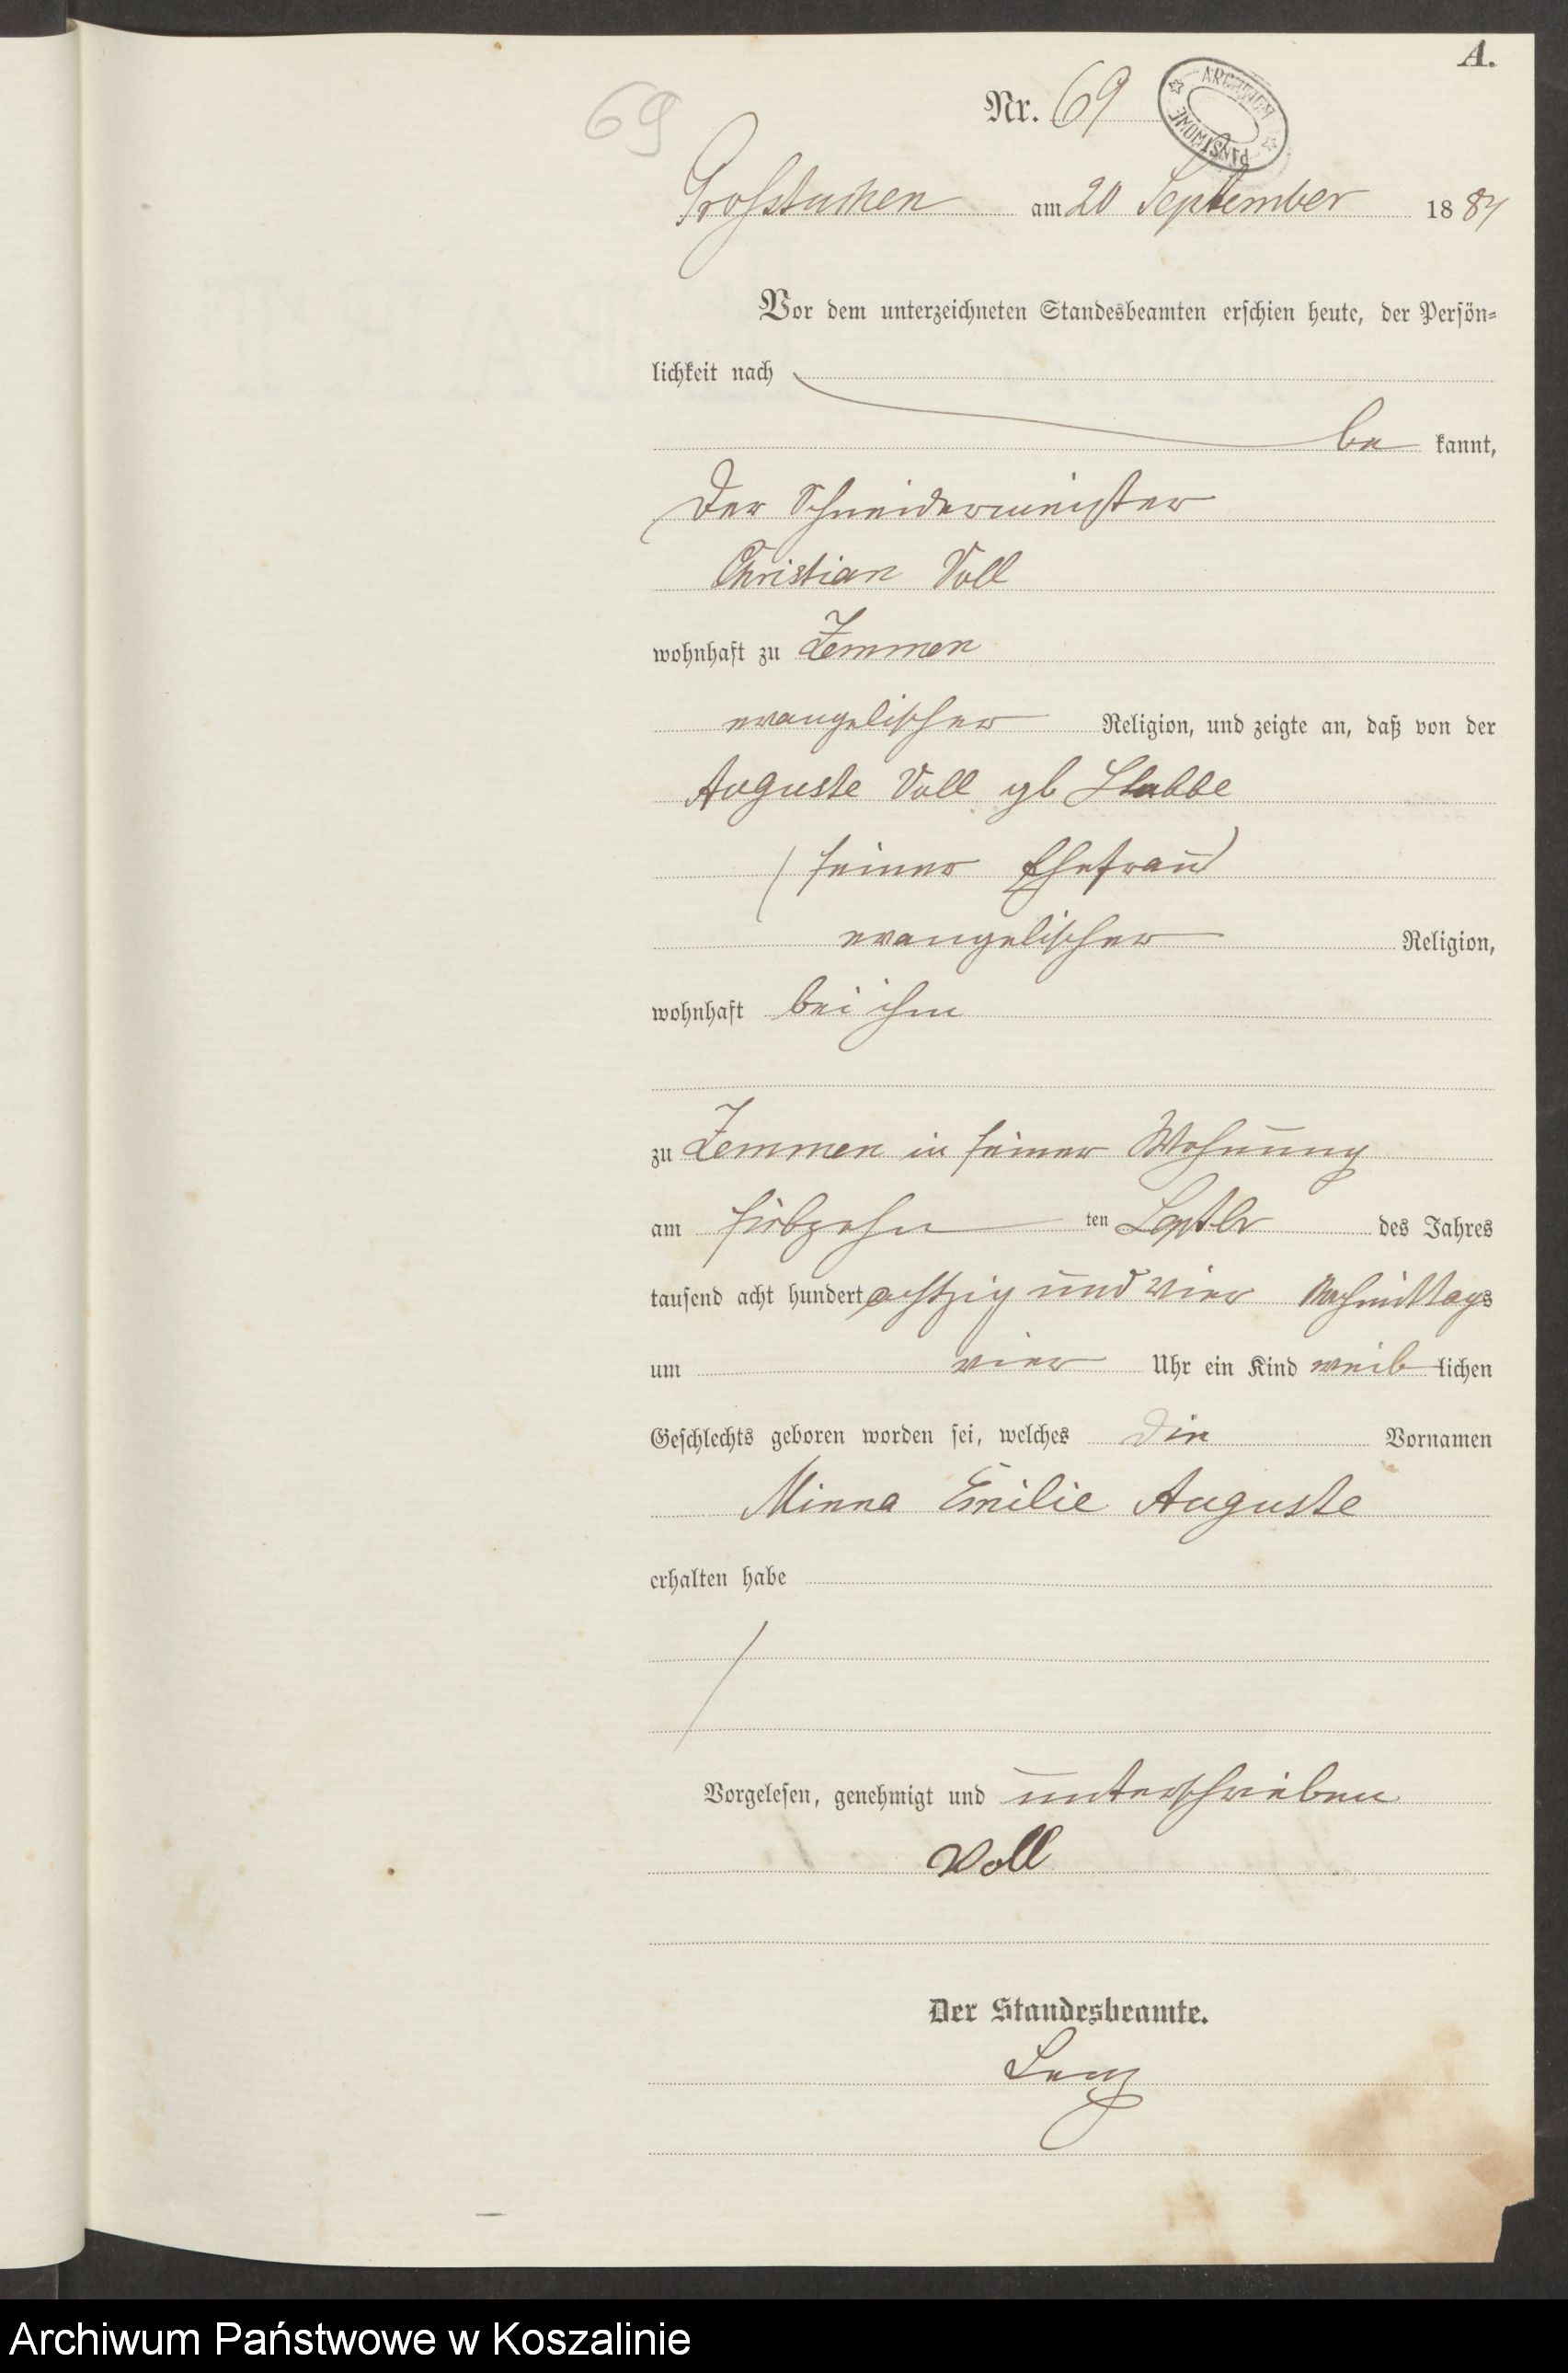 A.
69
Nr. 69
ARCHIWUM PAŃSTWOWE
Grosstuchen am 20 September 1884
Vor dem unterzeichneten Standesbeamten erschien heute, der Persön-
lichkeit nach
be kannt,
Der Schneidermeister
Christian Voll
wohnhaft zu Zemmen
evangelischer Religion, und zeigte an, daß von der
Auguste Voll gb Stubbe
(seiner Ehefrau)
evangelischer Religion,
wohnhaft bei ihm
zu Zemmen in seiner Wohnung
am siebzehn ten Septbr des Jahres
tausend acht hundert achtzig und vier Nachmittags
um vier Uhr ein Kind weib lichen
Geschlechts geboren worden sei, welches die Vornamen
Minna Emilie Auguste
erhalten habe
Vorgelesen, genehmigt und unterschrieben
Voll
Der Standesbeamte.
Lenz
Archiwum Państwowe w Koszalinie